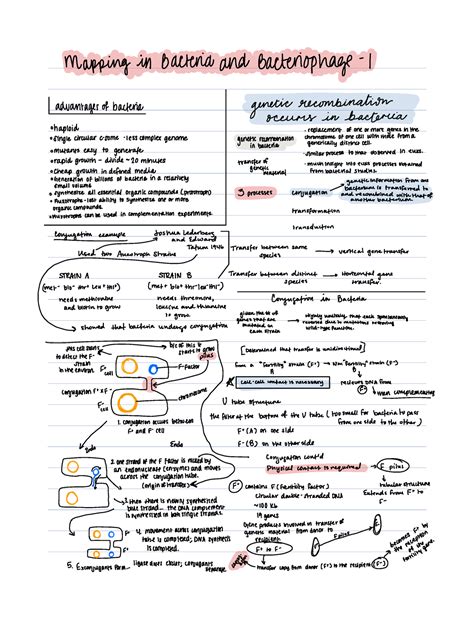 Mapping in Bacteria and Bacteriophage - 1
advantages of bacteria
• haploid
• single circular c-some - less complex genome
• mutants easy to generate
• rapid growth - divide ~20 minutes
• cheap growth in defined media
• Generation of billions of bacteria in a relatively
small volume
• synthesize all essential organic compounds (prototroph)
• Auxotrophs - lost ability to synthesize one or more
organic compounds.
• Auxotrophs can be used in complementation experiments.
genetic recombination
occurs in bacteria
genetic recombination
in bacteria
- replacement of one or more genes in the
chromosome of one cell with those from a
genetically distinct cell.
transfer of
genetic
material
• similar process to that observed in euks.
• much insight into euks processes obtained
from bacterial studies.
3 processes
conjugation
genetic information from one
bacterium is transferred to
and recombined with that of
another bacterium.
transformation
transduction
Conjugation example
Joshua Lederberg
and Edward
Tatum 1946
Used two Auxotroph Strains
STRAIN A
(met⁻ bio⁻ thr⁺ leu⁺ thi⁺)
needs methionine
and biotin to grow
STRAIN B
(met⁺ bio⁺ thr⁻ leu⁻ thi⁻)
needs threonine,
leucine and thiamine
to grow.
showed that bacteria undergo conjugation
Transfer between same
species
vertical gene transfer
Transfer between distinct
species
Horizontal gene
transfer.
Conjugation in Bacteria
given the # of
genes that are
mutated in
each strain
highly unlikely that each spontaneously
reverted due to mutations restoring
wild-type function.
[Determined that transfer is unidirectional]
from a "fertility" strain (F⁺) → non "fertility" strain (F⁻)
A
B
cell-cell contact is necessary
receives DNA from
when complementing
U tube structure
the filter at the bottom of the U tube (too small for bacteria to pass
from one side to the other)
F⁺ (A) on one side
F⁻ (B) on the other side
this cell starts
to detect the F⁻
strain
in the environ.
bc of this it
starts to grow
pilus
F⁺
cell
F-factor
conjugation F⁺ x F⁻
F⁻
cell
chromosome
1. conjugation occurs between
F⁺ and F⁻ cell
Endo
Endo
2. one strand of the F factor is nicked by
an endonuclease (enzyme) and moves
across the conjugation tube.
(origin of transfer)
3. then there is newly synthesized
dbl strand. the DNA complement
is synthesized in both single strands.
4. movement across conjugation
tube is completed; DNA synthesis
is completed.
5. Exconjugants form
ligase does closer; conjugants
Conjugation cont'd
Physical contact is required
F pilus
tubular structure
Extends from F⁺ to
F⁻
F⁺ contains F (fertility factor)
circular double-stranded DNA
~100 kb
19 genes
gene products involved in transfer of
genetic material from donor to
recipient
F⁺ to F⁻
F pilus
transfer copy from donor (F⁺) to the recipient (F⁻)
becomes F⁺ by
the reception
of the
fertility gene.